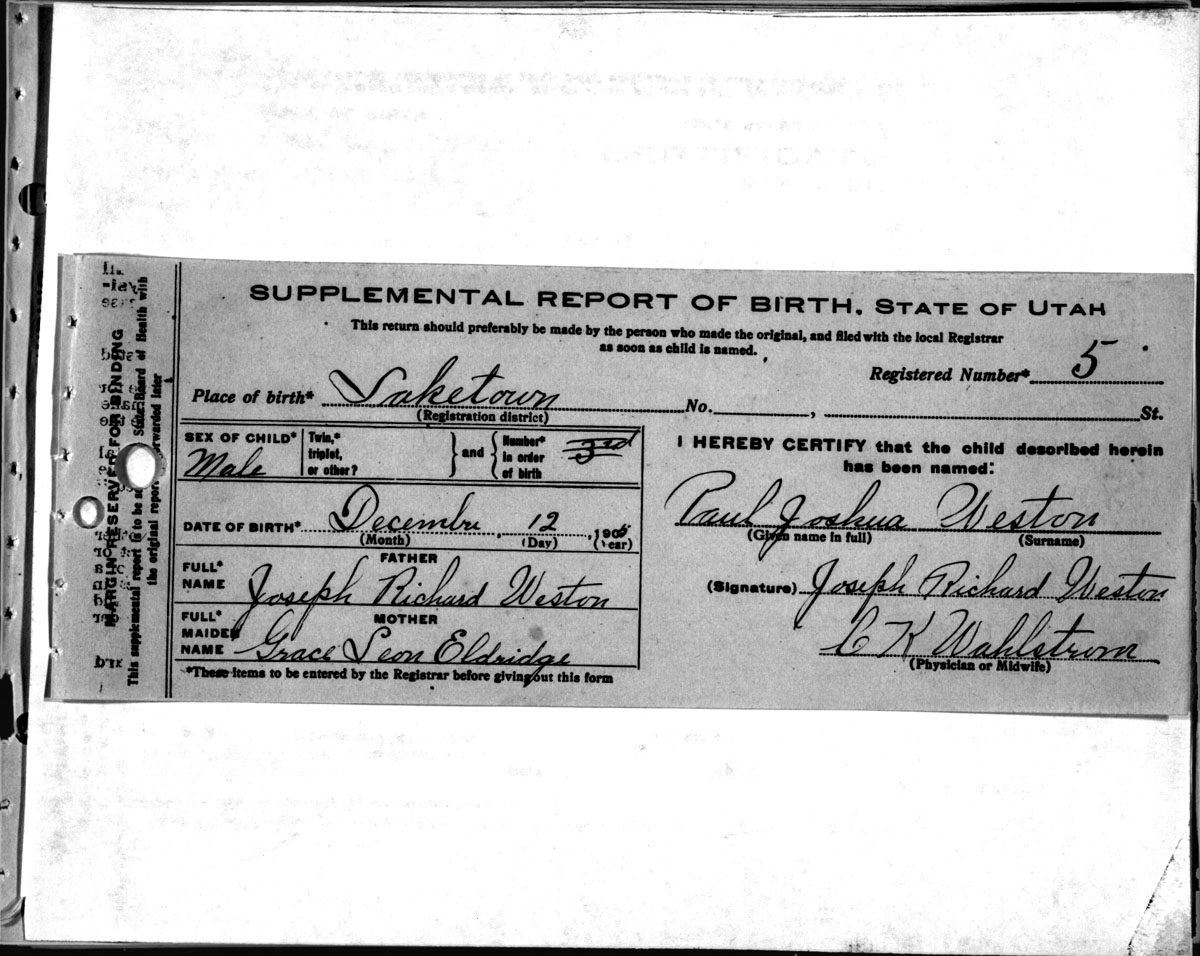 SUPPLEMENTAL REPORT OF BIRTH, STATE OF UTAH
This return should preferably be made by the person who made the original, and filed with the local Registrar
as soon as child is named.
Registered Number* 5
Place of birth* Laketown No. , St.
(Registration district)
SEX OF CHILD* Male
Twin,* triplet, or other? and Number* in order of birth 3rd
DATE OF BIRTH* Decembr 12, 1905
(Month) (Day) (Year)
FATHER
FULL* NAME Joseph Richard Weston
MOTHER
FULL* MAIDEN NAME Grace Leon Eldridge
*These items to be entered by the Registrar before giving out this form
I HEREBY CERTIFY that the child described herein
has been named:
Paul Joshua Weston
(Given name in full) (Surname)
(Signature) Joseph Richard Weston
C K Wahlstrom
(Physician or Midwife)
MARGIN RESERVED FOR BINDING
This supplemental report is to be State Board of Health with
the original report forwarded later